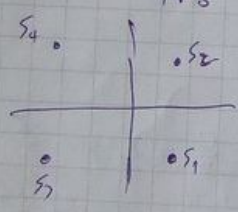 S4
S2
S3
S1